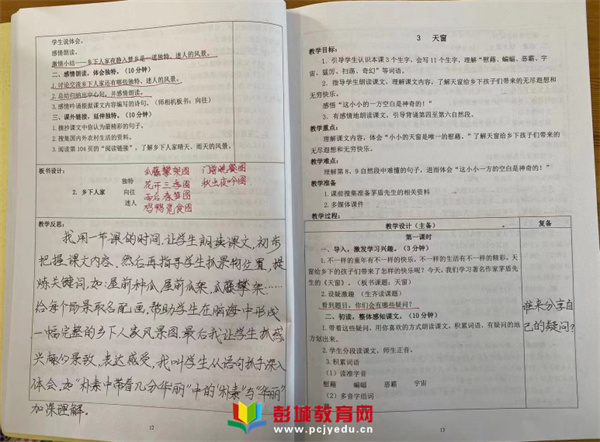 学生谈体会。
感情朗读。
激情小结——乡下人家夜静人梦乡是一道独特、迷人的风景。
二、感情朗读,体会独特。(10分钟)
1. 讨论交流乡下人家还有哪些独特、迷人的风景。
2. 总结归纳出中心句,并感情朗读。
3. 感情吟诵根据课文内容编写的诗句。(师相机板书:向往)
三、课外链接,延伸独特。(10分钟)
1. 摘抄课文中你认为最精彩的句子。
2. 搜集国内外农村生活的资料。
3. 阅读第104页的“阅读链接”,了解乡下人家晴天、雨天的风景。
板书设计:
独特 瓜藤攀架图 门前晚餐图
2. 乡下人家 向往 花开三季图 秋虫夜吟图
迷人
鸡鸭觅食图
教学反思:
我用一节课的时间,让学生朗读课文,初步
把握课文内容,然后再指导学生抓景物位置,提
炼关键词,如:屋前种瓜、屋前瓜架、瓜藤攀架……
给每个场景取名配画,帮助学生在脑海中形成
一幅完整的乡下人家风景图。最后我让学生抓感
兴趣的景致,表达感受,我叫学生从语句抓手深入
体会,如“朴素中带着几分华丽”中的“朴素”与“华丽”
加深理解。
12
3 天窗
教学目标:
1. 引导学生认识本课3个生字,会写11个生字,理解“慰藉、蝙蝠、恶霸、宇
宙、猛厉、扫荡、奇幻”等词语。
2. 指导学生朗读课文,理解课文内容,了解天窗给乡下孩子们带来的无尽遐想和
无穷快乐。
感悟“这小小的一方空白是神奇的!”
3. 有感情地朗读课文,引导背诵第四至第六自然段。
教学重点:
理解课文内容,体会“小小的天窗是唯一的慰藉。”了解天窗给乡下孩子们带来的
无尽遐想和无穷快乐。
教学难点:
理解第8、9自然段中难懂的句子,进而体会“这小小一方的空白是神奇的!”
教学准备
1. 课前搜集准备茅盾先生的相关资料
2. 多媒体课件
教学过程:
教学设计(主备) 复备
第一课时
一、导入,激发学习兴趣。(3分钟)
1. 不一样的童年有不一样的快乐、不一样的生活有不一样的精彩。天
窗给乡下的孩子们带来了怎样的快乐呢?今天,我们学习著名作家茅盾先
生的《天窗》。(板书课题:天窗)
2. 设疑激趣 (生齐读课题)
看到题目,你们会有哪些疑问?
谁来分享自
己的疑问?
二、初读,整体感知课文。(10分钟)
1. 带着这些疑问,用你喜欢的方式朗读课文,积累词语,有疑问的地
方划出来。
2. 学生分段读课文,师生正音。
3. 积累词语
(1)读准字音
慰藉 蝙蝠 恶霸 宇宙
(2)多音字组词
13
彭城教育网
www.pcjyedu.cn